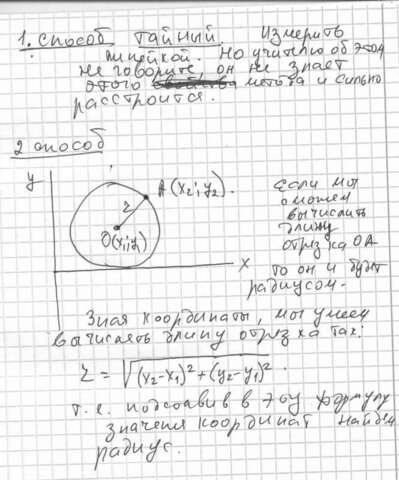 1. способ тайный. Измерить
линейкой. Но учителю об этом
не говорите он не знает
этого метода и сильно
расстроится.
2 способ
y
A (x2; y2).
r
O(x1; y1)
x
Если мы
сможем
вычислить
длину
отрезка OA
то он и будет
радиусом.
Зная координаты, мы умеем
вычислять длину отрезка так:
r = √(x2-x1)² + (y2-y1)² .
т. е. подставив в эту формулу
значения координат найдём
радиус.